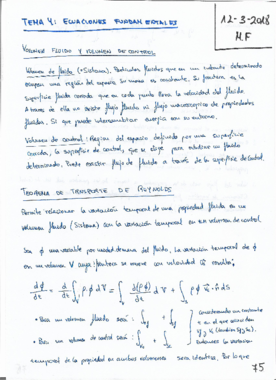 TEMA 4: ECUACIONES FUNDAMENTALES
12-3-2018
M.F
VOLUMEN FLUIDO Y VOLUMEN DE CONTROL
Volumen de fluido (=Sistema). Partículas fluidas que en un instante determinado
ocupan una región del espacio. Su masa es constante. Su frontera es la
superficie fluida cerrada que en cada punto lleva la velocidad del fluido
A través de ella no existe flujo fluido ni flujo macroscópico de propiedades
fluidas. Sí que puede intercambiar energía con su entorno.
Volumen de control: Región del espacio definido por una superficie
cerrada, la superficie de control, que se elige para analizar un fluido
determinado. Puede existir flujo de fluido a través de la superficie de control.
TEOREMA DE TRANSPORTE DE REYNOLDS
Permite relacionar la variación temporal de una propiedad fluida en un
volumen fluido (Sistema) con la variación temporal en un volumen de control.
Sea ϕ una variable por unidad de masa del fluido. La variación temporal de ϕ
en un volumen V cuya frontera se mueve con velocidad resulta:
dϕ/dt = d/dt ∫ ρ ϕ dV = ∫ ∂(ρϕ)/∂t dV + ∫ ρ ϕ · n dS
• Para un volumen fluido será:
• Para un volumen de control será:
Considerando un instante
t en el que coinciden
Entonces la variación
temporal de la propiedad en ambos volúmenes será idéntica. Por lo que
75
75